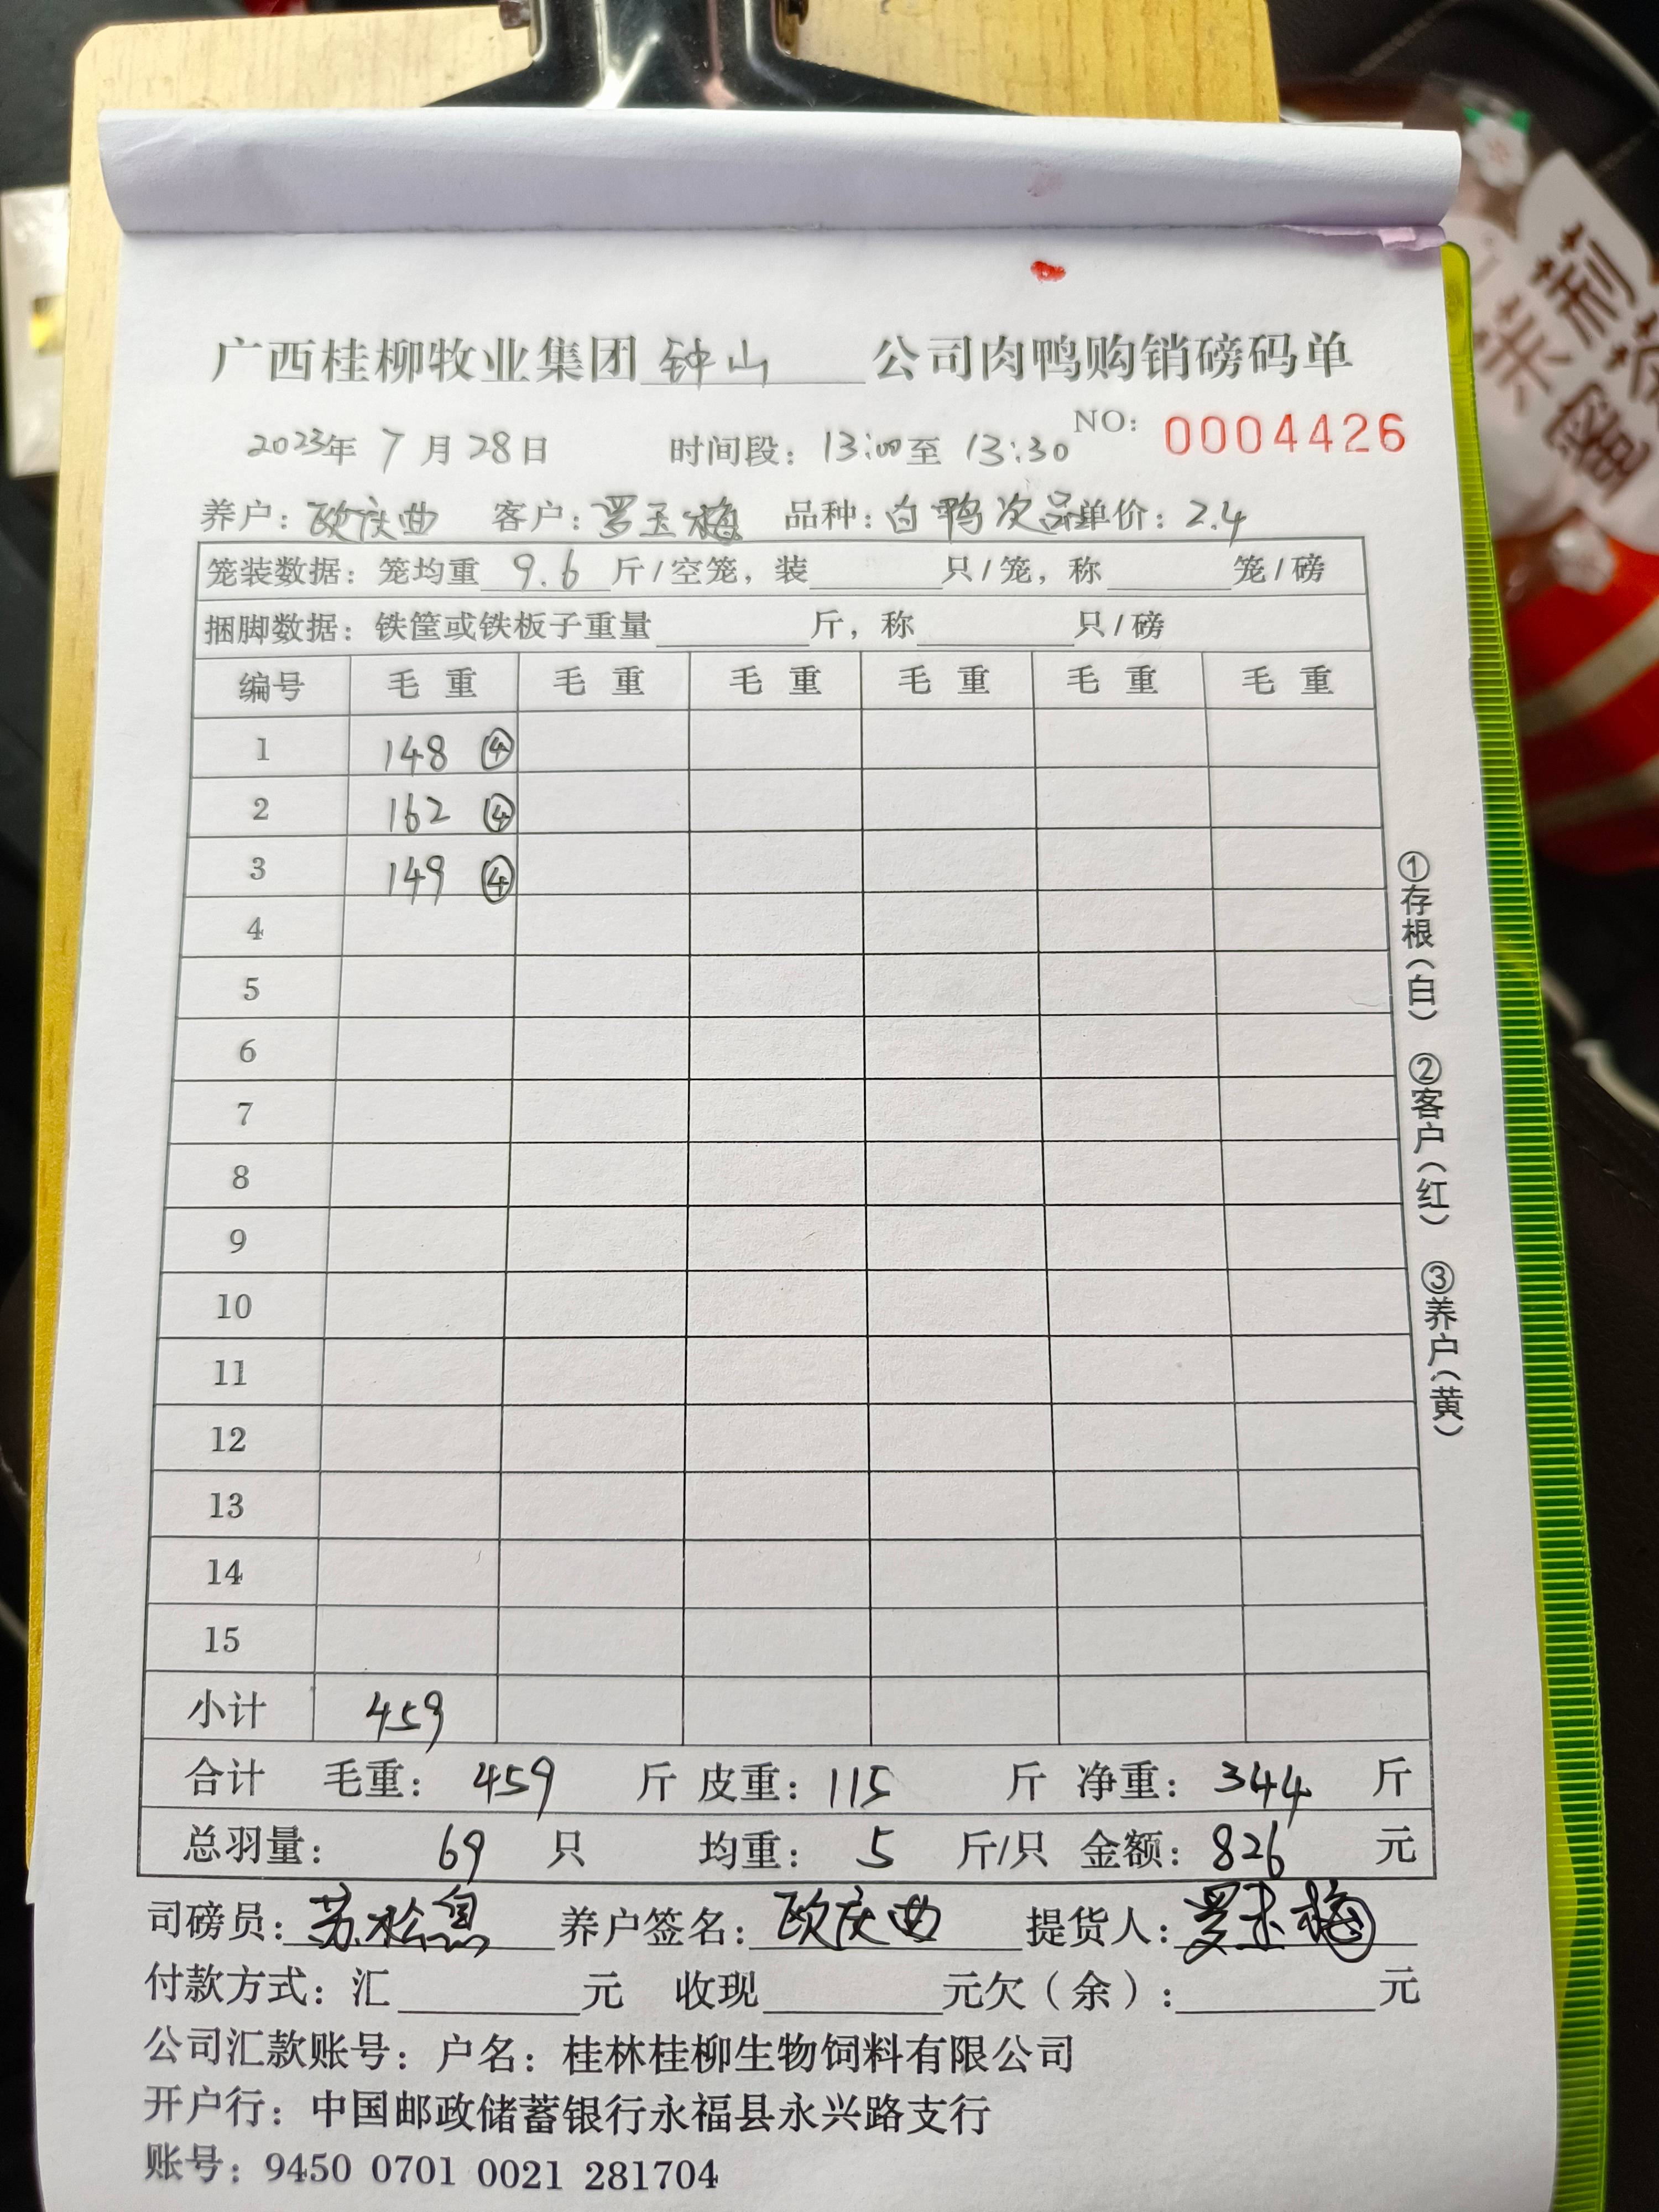 广西桂柳牧业集团 钟山 公司肉鸭购销磅码单
NO: 0004426
2023年 7 月 28 日 时间段: 13:00 至 13:30
养户: 欧庆曲 客户: 罗玉梅 品种: 白鸭次品 单价: 2.4
笼装数据: 笼均重 9.6 斤/空笼, 装 只/笼, 称 笼/磅
捆脚数据: 铁筐或铁板子重量 斤, 称 只/磅
编号 毛重 毛重 毛重 毛重 毛重 毛重
1 148 ④
2 162 ④
3 149 ④
4
5
6
7
8
9
10
11
12
13
14
15
小计 459
合计 毛重: 459 斤 皮重: 115 斤 净重: 344 斤
总羽量: 69 只 均重: 5 斤/只 金额: 826 元
司磅员: 苏松 养户签名: 欧庆曲 提货人: 罗玉梅
付款方式: 汇 元 收现 元欠(余): 元
公司汇款账号: 户名: 桂林桂柳生物饲料有限公司
开户行: 中国邮政储蓄银行永福县永兴路支行
账号: 9450 0701 0021 281704
①存根(白) ②客户(红) ③养户(黄)